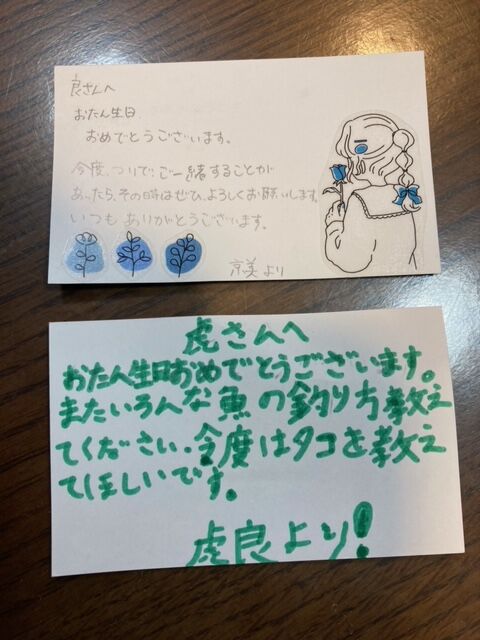 良さんへ
おたん生日
おめでとうございます。
今度、つりでご一緒することが
あったら、その時はぜひ、よろしくお願いします。
いつもありがとうございます。
京美より
虎さんへ
おたん生日おめでとうございます。
またいろんな魚の釣り方教え
てください。今度はタコを教え
てほしいです。
虎良より!